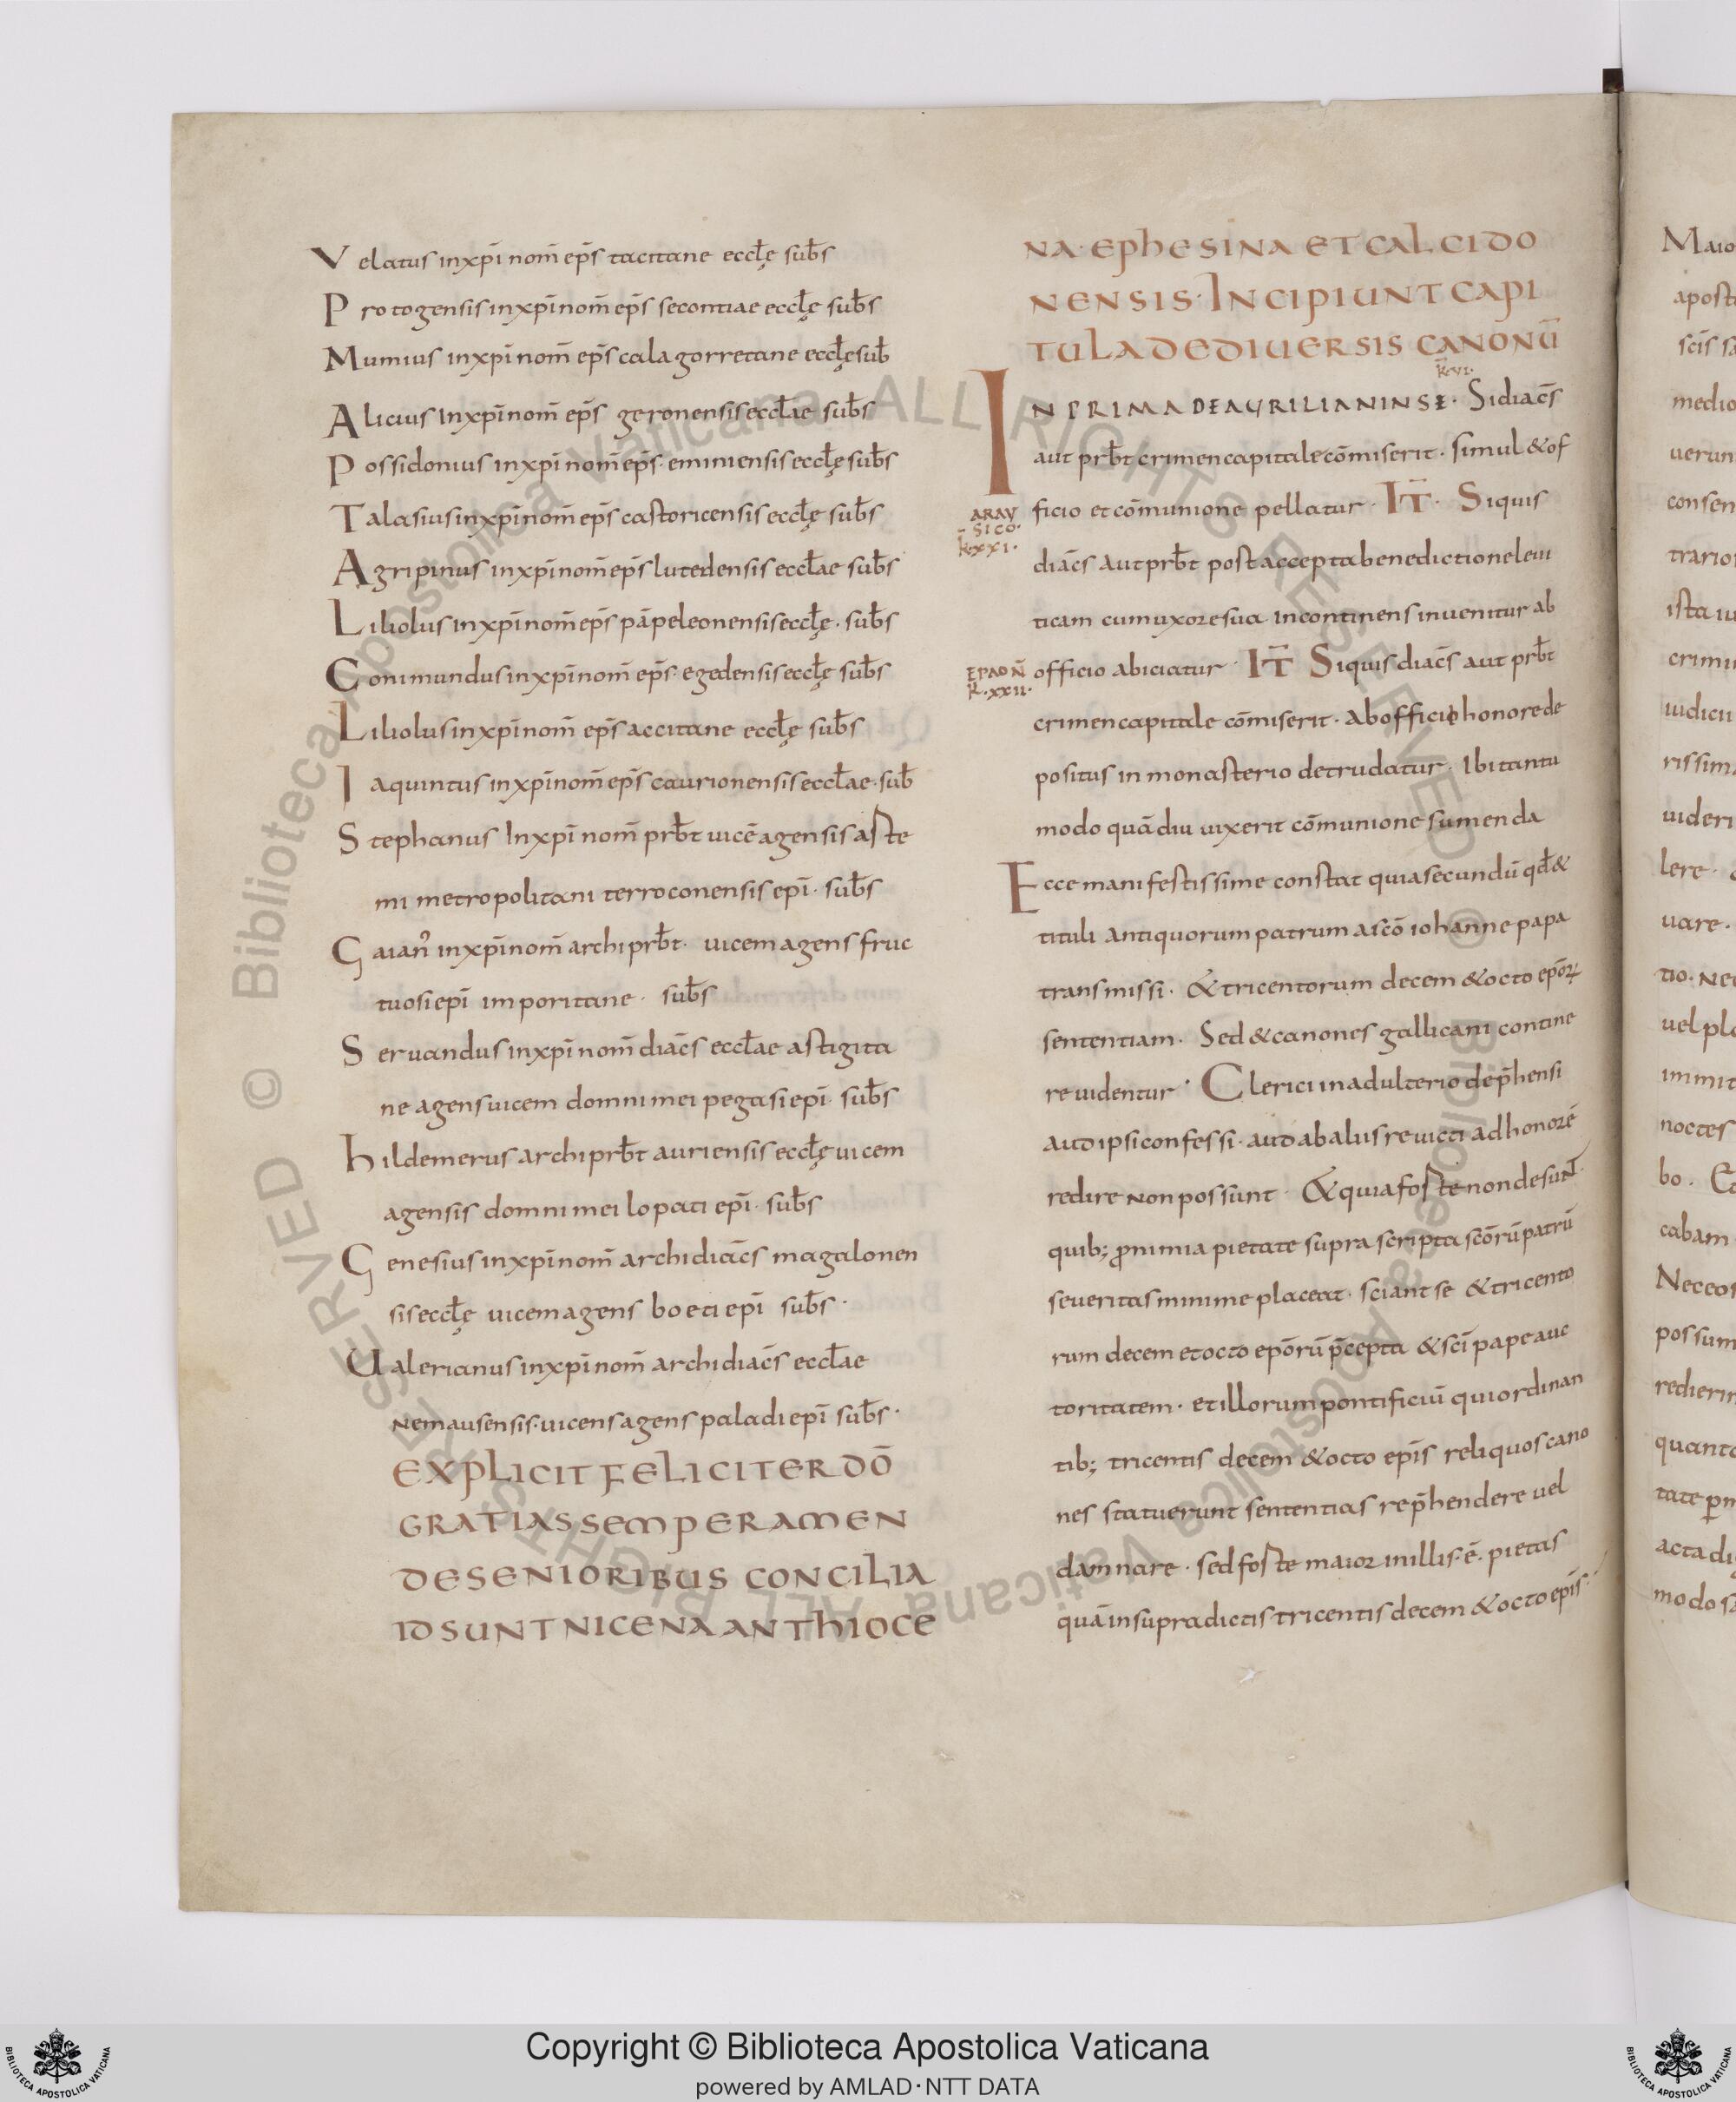 Velatus in xpi nom̄ ep̄s tacitane eccl̄ę sub̄s
Protogensis in xpi nom̄ ep̄s secontiae eccl̄ę sub̄s
Mumius in xpi nom̄ ep̄s calagorretane eccl̄ę sub̄
Alicius in xpi nom̄ ep̄s geronensis eccl̄ae sub̄s
Possidonius in xpi nom̄ ep̄s· eminiensis eccl̄ę sub̄s
Talasius in xpi nom̄ ep̄s castoricensis eccl̄ę sub̄s
Agripinus in xpi nom̄ ep̄s lutedensis eccl̄ae sub̄s
Liliolus in xpi nom̄ ep̄s pāpeleonensis eccl̄ę· sub̄s
Conimundus in xpi nom̄ ep̄s· egedensis eccl̄ę sub̄s
Liliolus in xpi nom̄ ep̄s accitane eccl̄ę sub̄s
Iaquintus in xpi nom̄ ep̄s caurionensis eccl̄ae· sub̄
Stephanus In xpi nom̄ prb̄t uicē agensis aste
mi metropolitani terroconensis epī· sub̄s
in xpi nom̄ archiprb̄t· uicem agens fruc
tuosi epī imporitane· sub̄s
Seruandus in xpi nom̄ diac̄s eccl̄ae astigita
ne agens uicem domni mei pegasi epī· sub̄s
hildemerus archiprb̄t auriensis eccl̄ę uicem
agensis domni mei lopati epī· sub̄s
Genesius in xpi nom̄ archidiac̄s magalonen
sis eccl̄ę uicem agens boeti epī sub̄s·
Ualerianus in xpi nom̄ archidiac̄s eccl̄ae
nemausensis· uicens agens paladi epī sub̄s·
EXPLICIT FELICITER DŌ
GRATIAS SEMPER AMEN
DE SENIORIBUS CONCILIA
ID SUNT NICENA ANThIOCE
NA· EphESINA ET CALCIDO
NENSIS· INCIPIUNT CAPI
TULA DE DIUERSIS CANONŪ
k̄·ui·
IN PRIMA DE AURILIANINSE· Si diac̄s
aut prb̄t crimen capitale cōmiserit· simul & of
ARAU
SICO·
k̄·xxi·
ficio et cōmunione pellatur· IT̄· Siquis
diac̄s aut prb̄t post accepta benedictione leui
ticam cum uxore sua incontinens inuenitur ab
EPAON̄
k̄·xxii·
officio abiciatur· IT̄ Siquis diac̄s aut prb̄t
crimen capitale cōmiserit· ab officio honore de
positus in monasterio detrudatur· Ibi tantu
modo quādiu uixerit cōmunione sumenda
Ecce manifestissime constat quia secundū qd̄ &
tituli antiquorum patrum a scō iohanne papa
transmissi· & tricentorum decem & octo epōrꝝ
sententiam· Sed & canones gallicani contine
re uidentur· Clerici in adulterio dep̄hensi
aut ipsi confessi· aut ab alus reuicti ad honorē
redire non possunt· & quia fos̄te non desunt·
quib; ꝓ nimia pietate supra scripta scōrū patrū
seueritas minime placeat· sciant se & tricento
rum decem et octo epōrū p̄cepta & scī pape auc
toritatem· et illorum pontificiū qui ordinan
tib; tricentis decem & octo epīs reliquos cano
nes statuerunt sententias rep̄hendere uel
damnare· sed fos̄te maior in illis· ē· pietas
quā in supradictis tricentis decem & octo epīs·
Copyright © Biblioteca Apostolica Vaticana
powered by AMLAD·NTT DATA